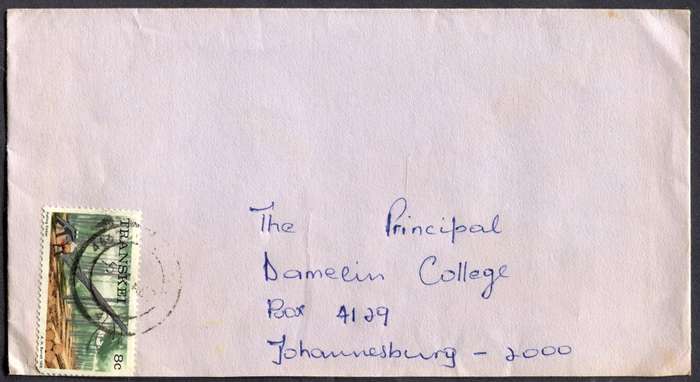 The Principal
Damelin College
Box 4129
Johannesburg - 2000
TRANSKEI
8c